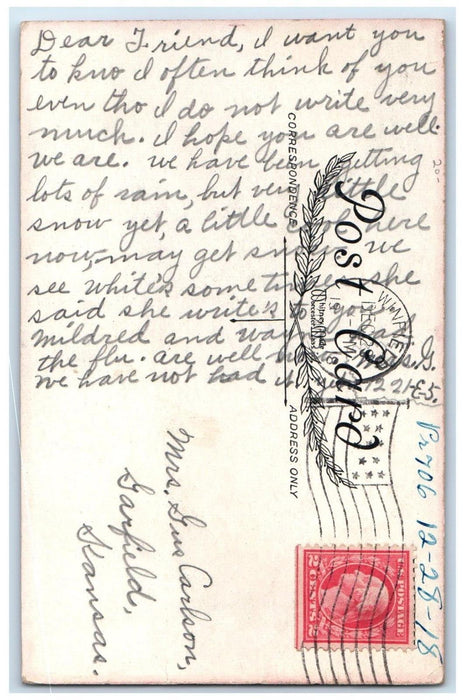 Dear Friend, I want you
to kno I often think of you
even tho I do not write very
much. I hope you are well.
we are. we have been getting
lots of rain, but very little
snow yet, a little cool here
now, may get snow. we
see White's sometimes, she
said she writes to you.
Mildred and
the flu. are well now
we have not had it. 12 21
CORRESPONDENCE
ADDRESS ONLY
Post Card
WINFIE
DEC
Mrs. Gus Carlson,
Garfield,
Kansas.
U.S. POSTAGE
2 CENTS 2
Pr706 12-28-18
20-